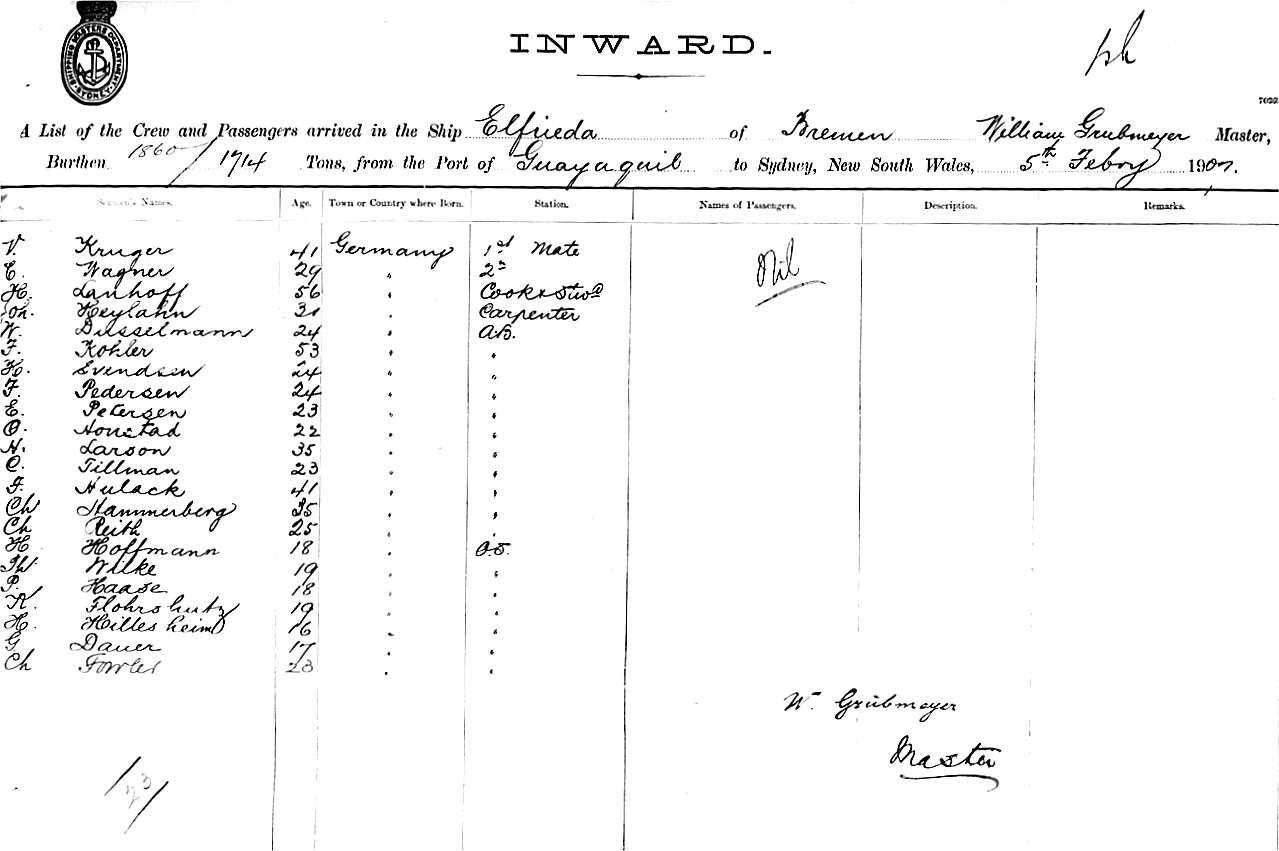 SHIPPING MASTERS DEPARTMENT SYDNEY
INWARD.
A List of the Crew and Passengers arrived in the Ship Elfrieda of Bremen William Grubmeyer Master,
Burthen 1860/1714 Tons, from the Port of Guayaquil to Sydney, New South Wales, 5th Febry 1907.
Names. Age. Town or Country where Born. Station. Names of Passengers. Description. Remarks.
V. Kruger 41 Germany 1st Mate Nil
C. Wagner 29 " 2nd
H. Lanhoff 56 " Cook & Stwd
Joh. Heylahn 31 " Carpenter
W. Dusselmann 24 " A.B.
F. Kohler 53 " "
H. Evendsen 24 " "
F. Pedersen 24 " "
E. Petersen 23 " "
O. Honstad 22 " "
N. Larson 35 " "
C. Tillman 23 " "
F. Hulack 41 " "
Ch Hammerberg 35 " "
Ch Reith 25 " "
H Hoffmann 18 " O.S.
Th Wilke 19 " "
P. Haase 18 " "
K. Flohrshutz 19 " "
H. Hillesheim 16 " "
G. Dauer 17 " "
Ch Fowler 23 " "
W. Grübmeyer
Master
/23/